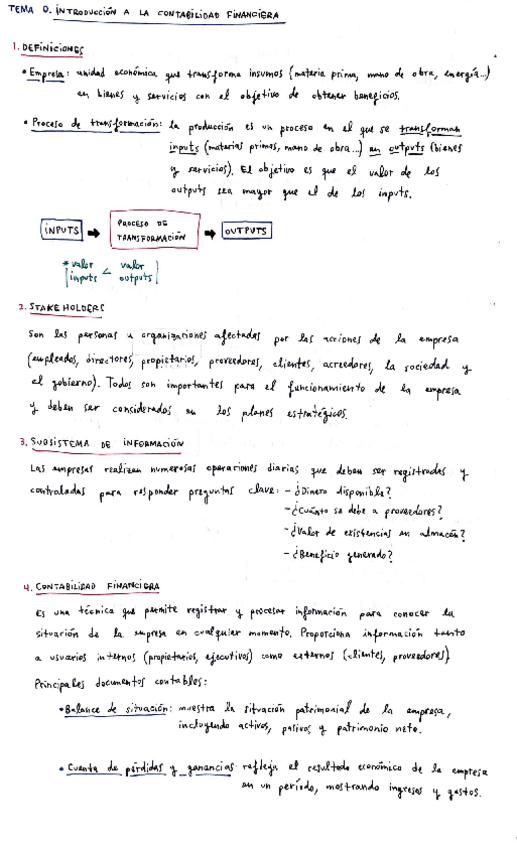 TEMA 0. INTRODUCCIÓN A LA CONTABILIDAD FINANCIERA
1. DEFINICIONES
• Empresa: unidad económica que transforma insumos (materia prima, mano de obra, energía...)
en bienes y servicios con el objetivo de obtener beneficios.
• Proceso de transformación: la producción es un proceso en el que se transforman
inputs (materias primas, mano de obra...) en outputs (bienes
y servicios). El objetivo es que el valor de los
outputs sea mayor que el de los inputs.
INPUTS → PROCESO DE TRANSFORMACIÓN → OUTPUTS
* valor inputs < valor outputs
2. STAKEHOLDERS
Son las personas u organizaciones afectadas por las acciones de la empresa
(empleados, directores, propietarios, proveedores, clientes, acreedores, la sociedad y
el gobierno). Todos son importantes para el funcionamiento de la empresa
y deben ser considerados en los planes estratégicos.
3. SUBSISTEMA DE INFORMACIÓN
Las empresas realizan numerosas operaciones diarias que deben ser registradas y
controladas para responder preguntas clave: - ¿Dinero disponible?
- ¿Cuánto se debe a proveedores?
- ¿Valor de existencias en almacén?
- ¿Beneficio generado?
4. CONTABILIDAD FINANCIERA
Es una técnica que permite registrar y procesar información para conocer la
situación de la empresa en cualquier momento. Proporciona información tanto
a usuarios internos (propietarios, ejecutivos) como externos (clientes, proveedores)
Principales documentos contables:
• Balance de situación: muestra la situación patrimonial de la empresa,
incluyendo activos, pasivos y patrimonio neto.
• Cuenta de pérdidas y ganancias: refleja el resultado económico de la empresa
en un período, mostrando ingresos y gastos.